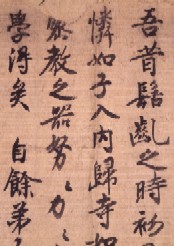 吾昔髫齔之時初
憐如子入內歸寺
教之器努々力々
學得矣 自餘弟